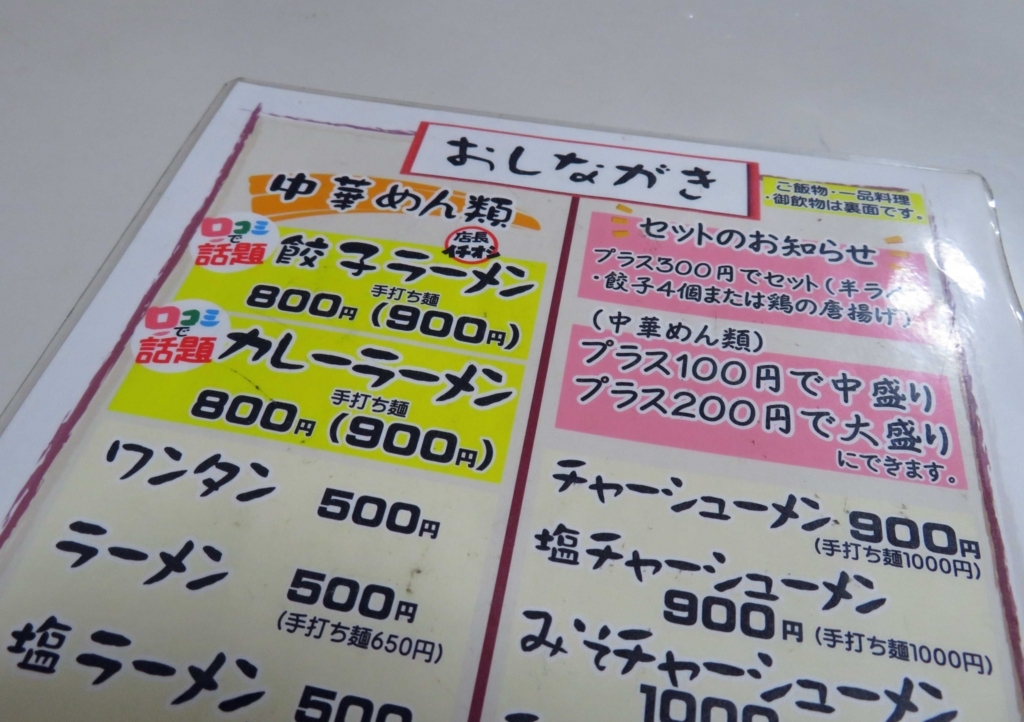 おしながき
ご飯物・一品料理
・御飲物は裏面です。
中華めん類
口コミで話題
餃子ラーメン
店長イチオシ
手打ち麺
800円(900円)
口コミで話題
カレーラーメン
手打ち麺
800円(900円)
ワンタン
500円
ラーメン
500円
(手打ち麺650円)
塩ラーメン
500
セットのお知らせ
プラス300円でセット(半ラ
・餃子4個または鶏の唐揚げ)
(中華めん類)
プラス100円で中盛り
プラス200円で大盛り
にできます。
チャーシューメン 900円
(手打ち麺1000円)
塩チャーシューメン
900円(手打ち麺1000円)
みそチャーシューメン
1000